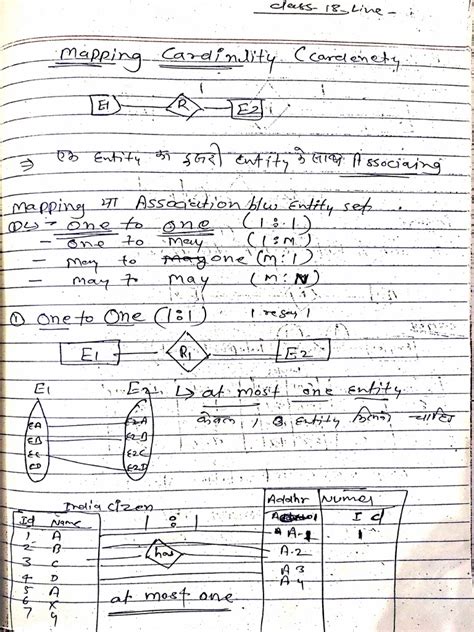 class-18-Live-
Mapping Cardinlity (cardenety
E1 R E2
⇒ एक Entity का दूसरी entity के साथ Associaing
Mapping या Association b/w Entity set
- One to One (1:1)
- One to May (1:m)
- may to one (m:1)
- may to may (m:N)
① One to One (1:1)
E1 R1 E2
E1 E2 ↳ at most one Entity
केवल 1 Entity
EA E2A
EB E2B
EC E2C
ED E2D
India Cizen 1:1 Addhr Numer
Id Name Id
1 A A-1 1
2 B has A-2
3 C A3
4 D A4
5 A at most one
6 X
7 Y